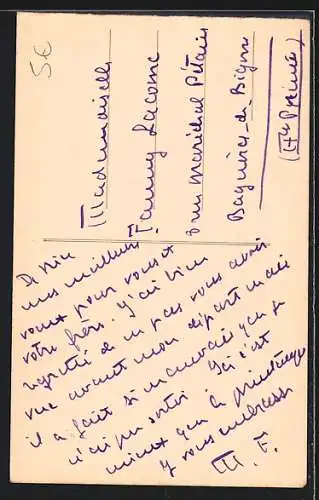 5€
Mademoiselle
Fanny Lacome
rue Maréchal Pétain
Bagnères de Bigorre
(Htes Pyrénées)
De Nice
mes meilleurs
vœux pour vous et
votre frère. J'ai bien
regretté de ne pas vous avoir
vue avant mon départ mais
il a fait si mauvais que je
n'ai pu sortir. Ici c'est
mieux que le printemps
Je vous embrasse
M. F.